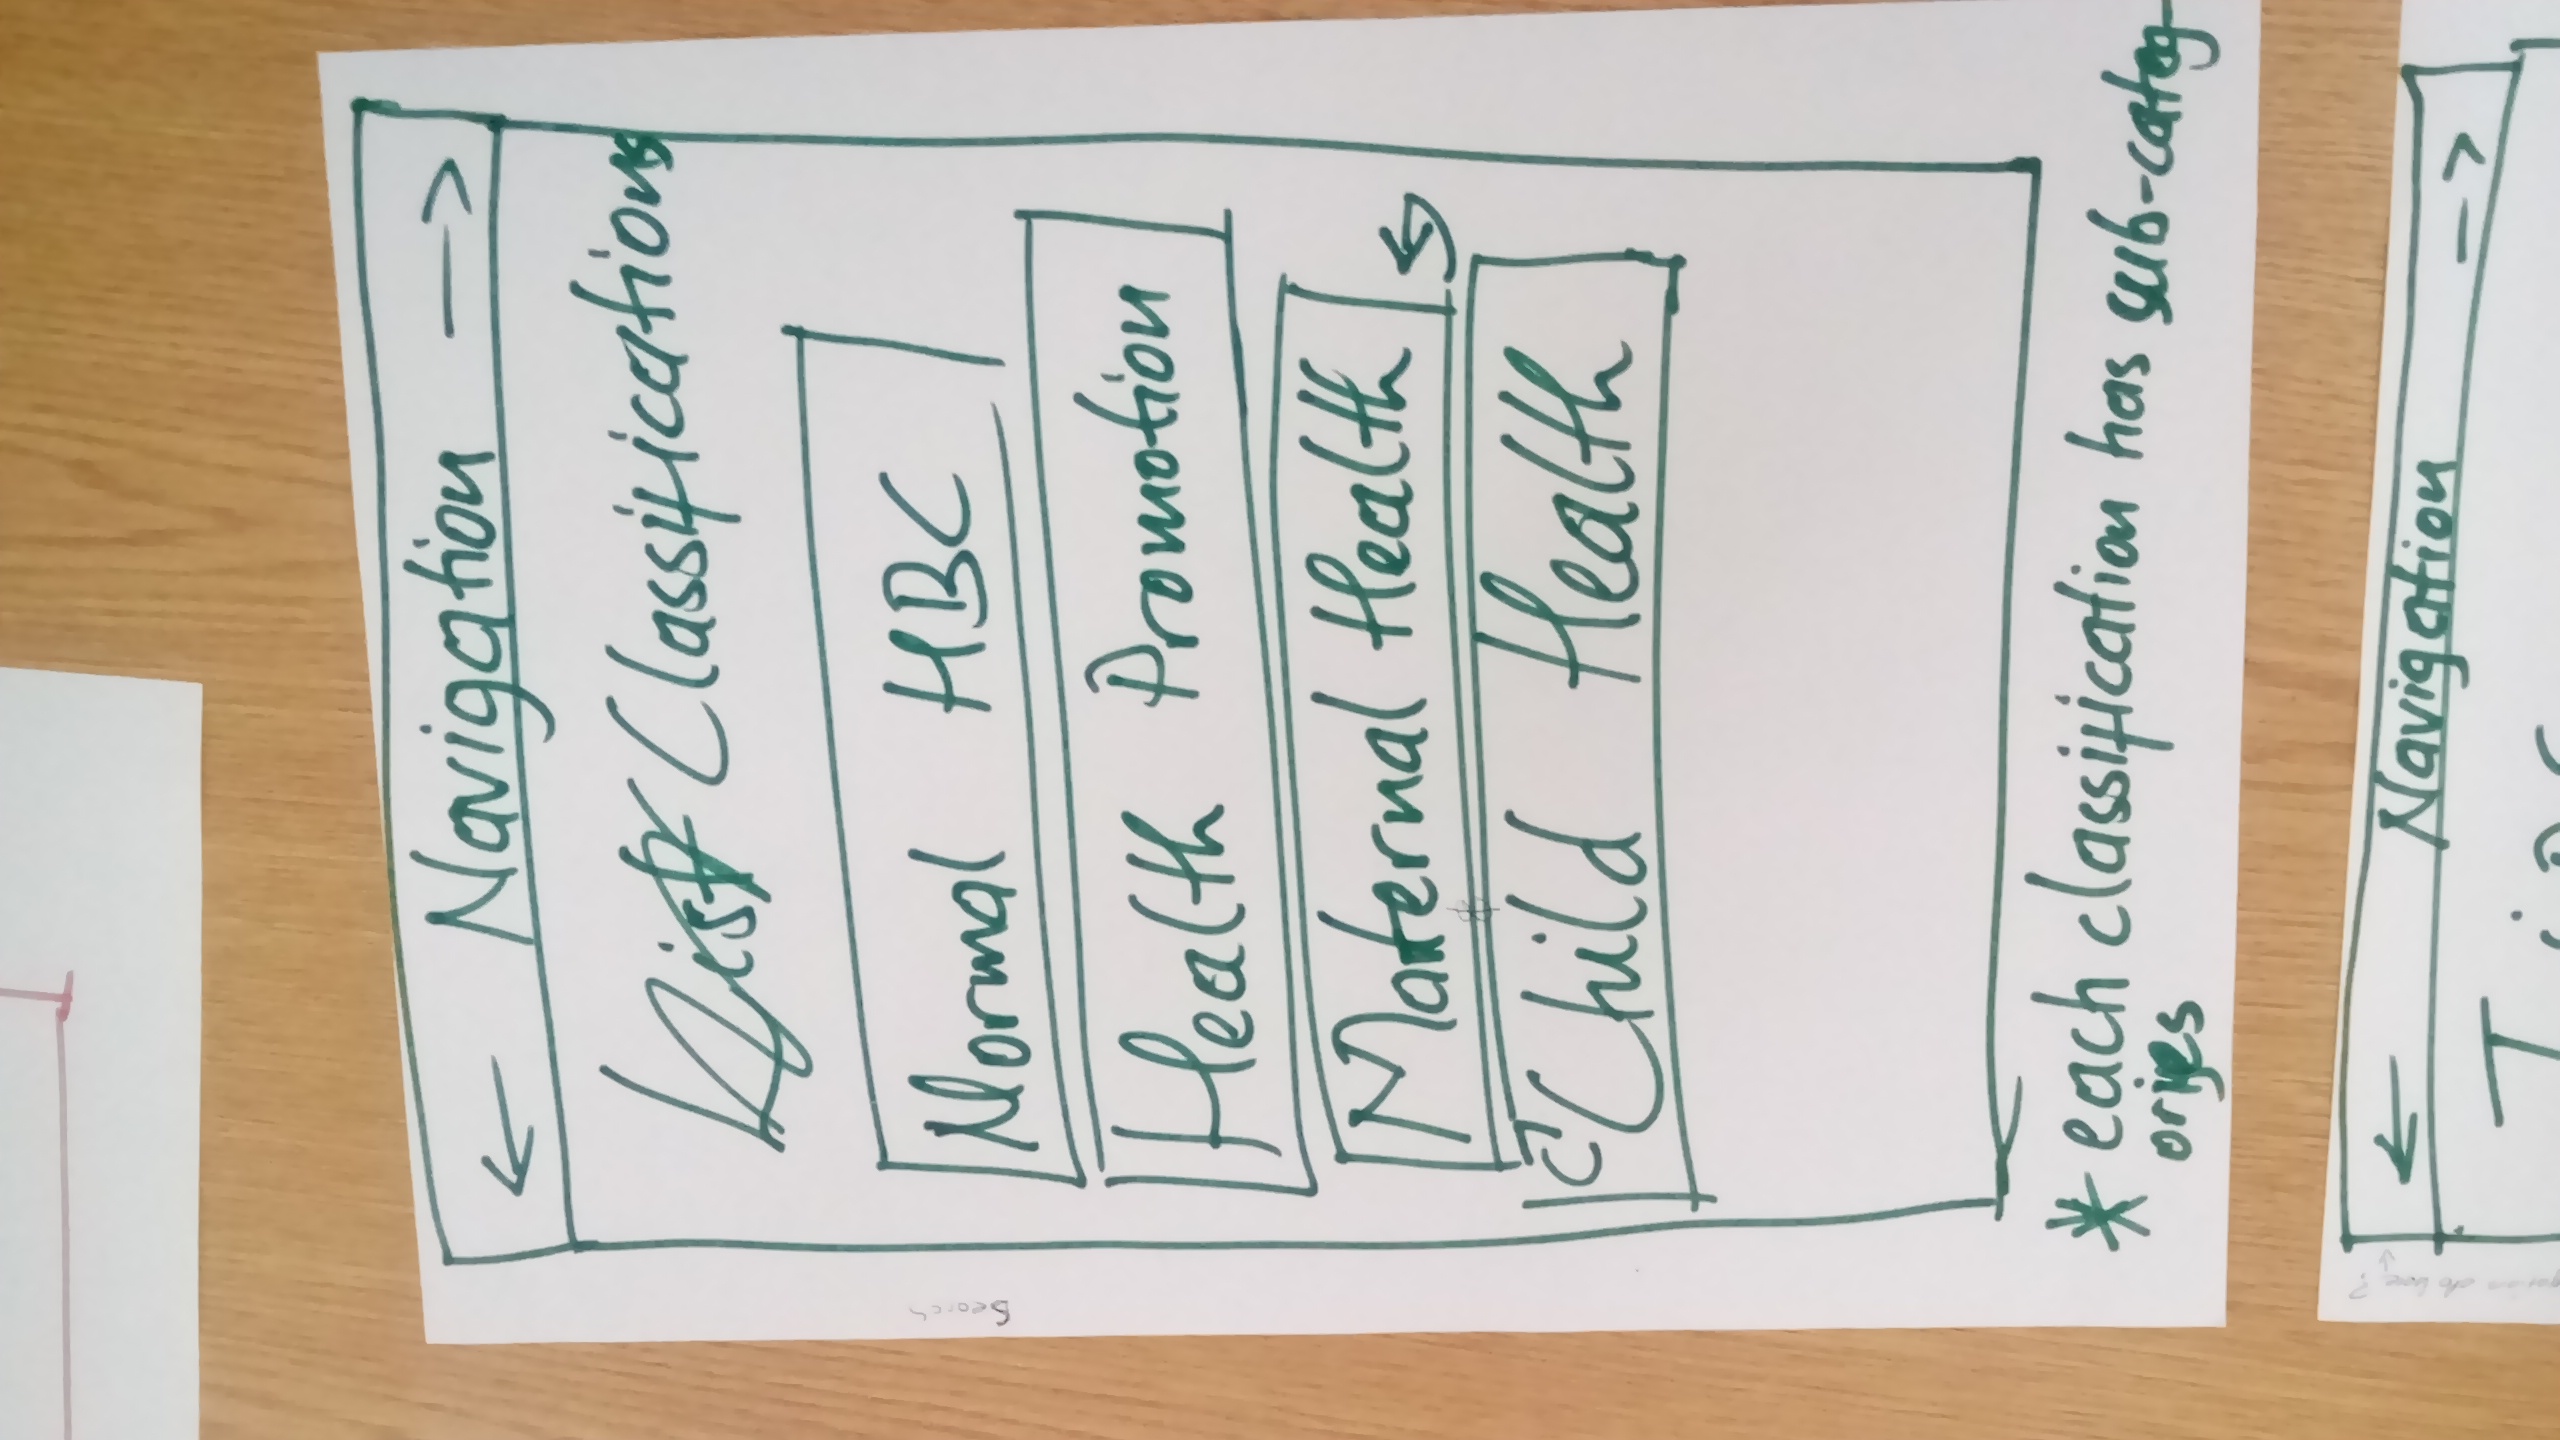 ← Navigation →
List Classifications
Normal HBC
Health Promotion
Maternal Health
Child Health
* each classification has sub-categ-
ories
Search
← Navigation →